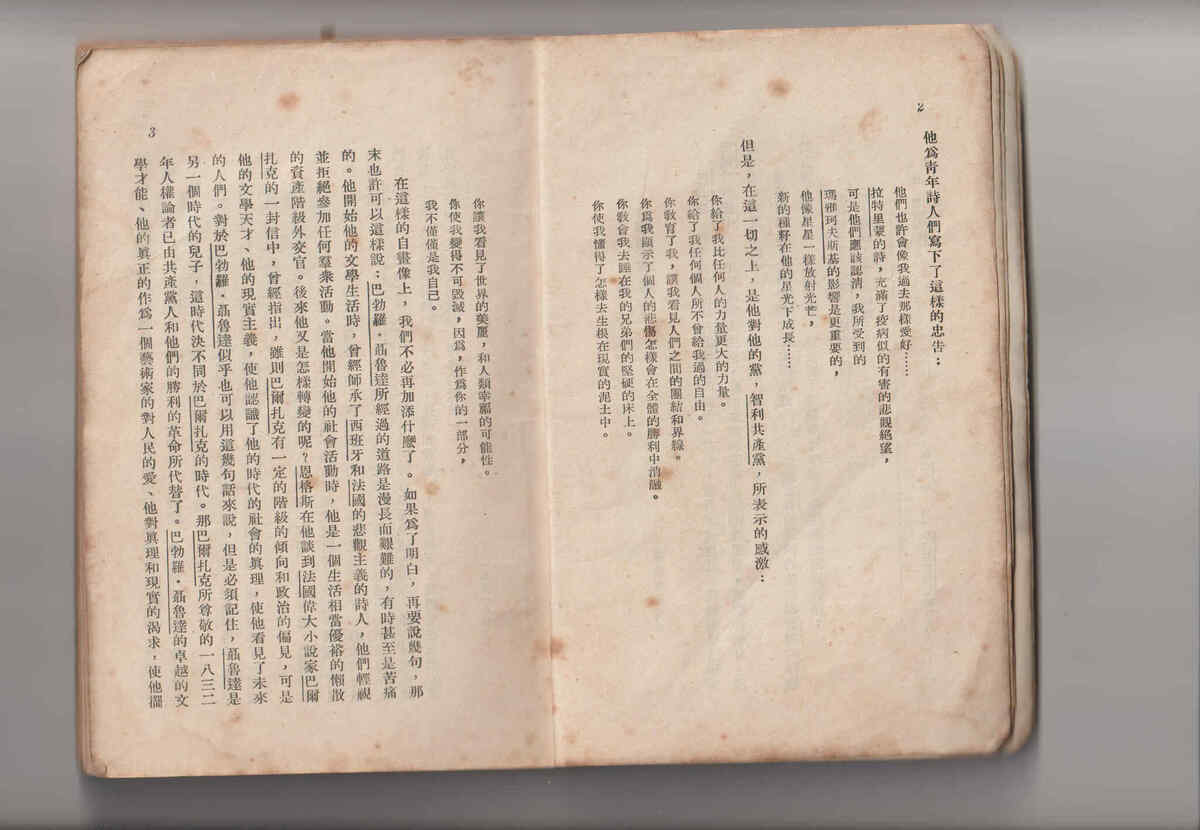 2
他爲靑年詩人們寫下了這樣的忠吿：
他們也許會像我過去那樣愛好……
拉特里蒙的詩，充滿了疫病似的有害的悲觀絕望，
可是他們應該認淸，我所受到的
瑪雅珂夫斯基的影響是更重要的，
他像星星一樣放射光芒，
新的種籽在他的星光下成長……
但是，在這一切之上，是他對他的黨，智利共產黨，所表示的感激：
你給了我比任何人的力量更大的力量。
你給了我任何個人所不曾給我過的自由。
你敎育了我，讓我看見人們之間的團結和界線。
你爲我顯示了個人的悲傷怎樣會在全體的勝利中消融。
你敎會我去睡在我的兄弟們的堅硬的床上。
你使我懂得了怎樣去生根在現實的泥土中。
你讓我看見了世界的美麗，和人類幸福的可能性。
你使我變得不可毀滅，因爲，作爲你的一部分，
我不僅僅是我自己。
在這樣的自畫像上，我們不必再加添什麽了。如果爲了明白，再要說幾句，那
末也許可以這樣說：巴勃羅·聶魯達所經過的道路是漫長而艱難的，有時甚至是苦痛
的。他開始他的文學生活時，曾經師承了西班牙和法國的悲觀主義的詩人，他們輕視
並拒絕參加任何羣衆活動。當他開始他的社會活動時，他是一個生活相當優裕的懶散
的資產階級外交官。後來他又是怎樣轉變的呢？恩格斯在他談到法國偉大小說家巴爾
扎克的一封信中，曾經指出，雖則巴爾扎克有一定的階級的傾向和政治的偏見，可是
他的文學天才、他的現實主義，使他認識了他的時代的社會的眞理，使他看見了未來
的人們。對於巴勃羅·聶魯達似乎也可以用這幾句話來說，但是必須記住，聶魯達是
另一個時代的兒子，這時代決不同於巴爾扎克的時代。那巴爾扎克所尊敬的一八三二
年人權論者已由共產黨人和他們的勝利的革命所代替了。巴勃羅·聶魯達的卓越的文
學才能、他的眞正的作爲一個藝術家的對人民的愛、他對眞理和現實的渴求，使他擺
3